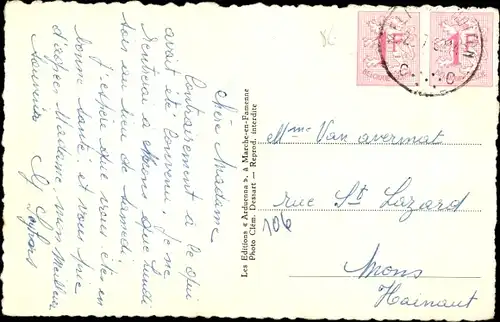 Chère Madame
Contrairement à ce qui
avait été convenu, je ne
rentrerai à Mons que lundi
soir au lieu de samedi.
J'espère que vous êtes en
bonne santé et vous prie
d'agréer Madame mon Meilleur
Souvenir
Les Editions « Arduenna », à Marche-en-Famenne
Photo Clém. Dessart - Reprod. interdite
Mme Van overmat
rue St Lazard
106
Mons
Hainaut